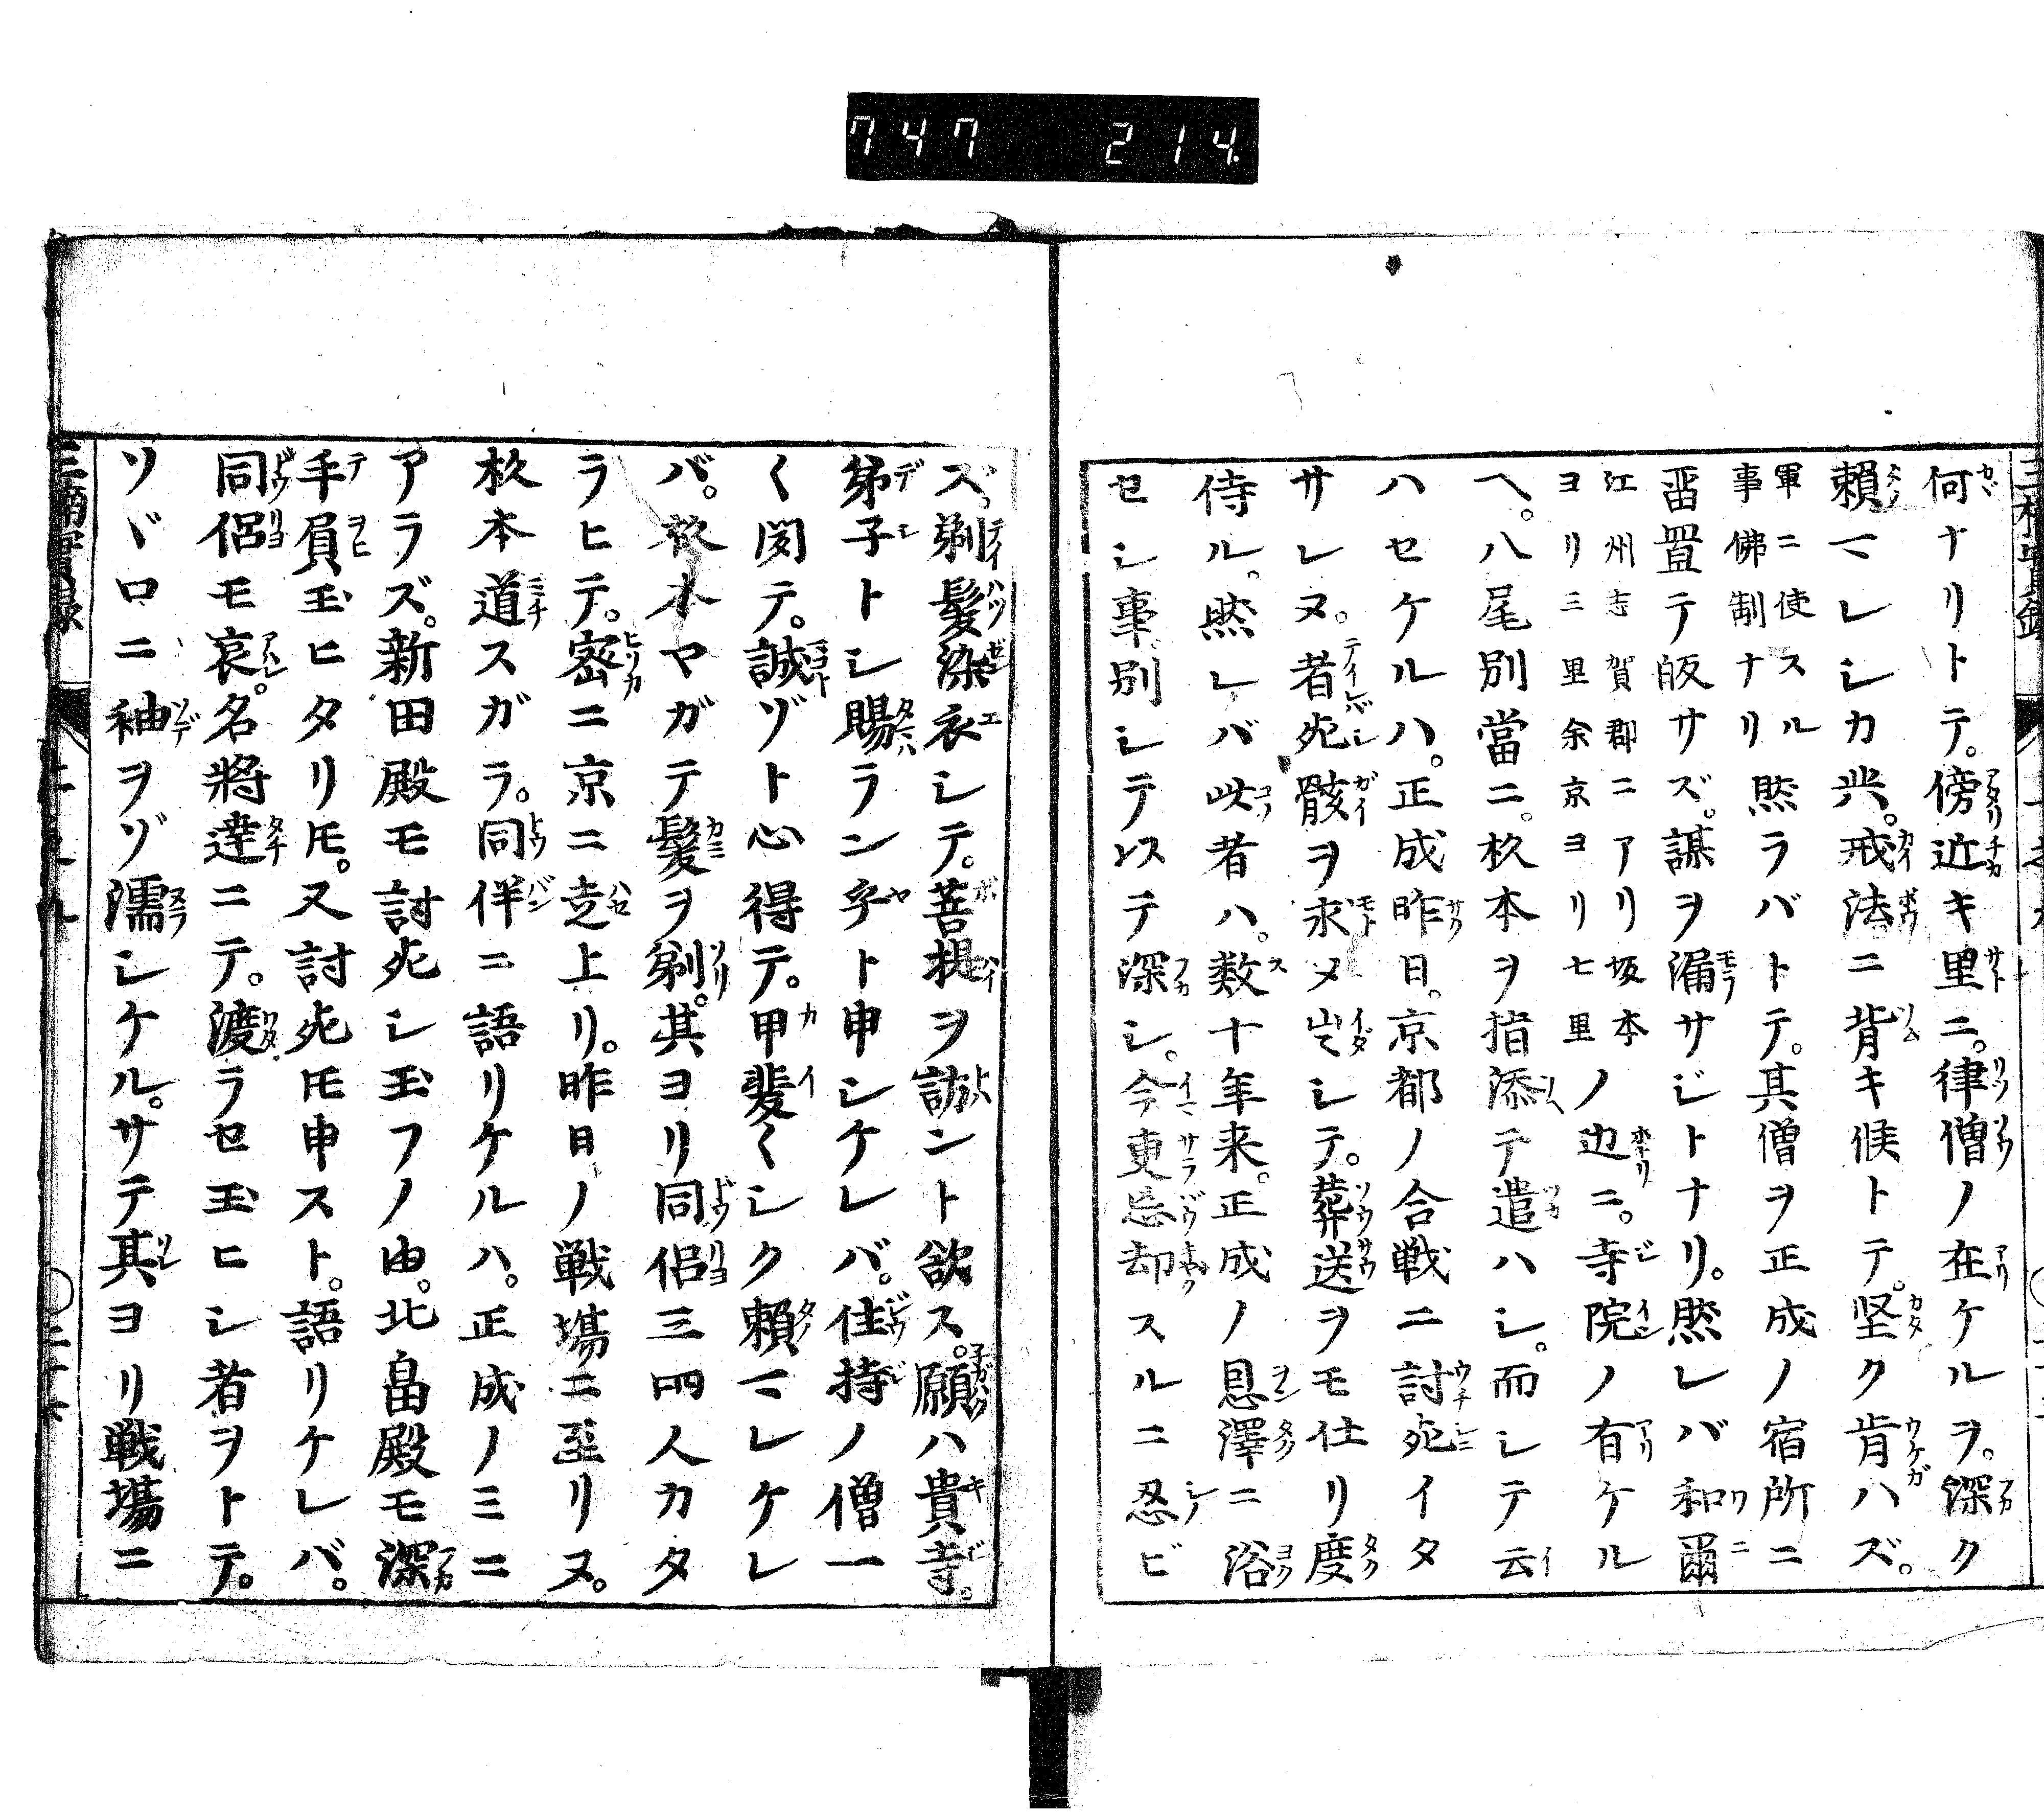 747 214.
何ナリトテ。傍近キ里ニ。律僧ノ在ケルヲ。深ク
頼マレシカ𪜈。戒法ニ背キ候トテ。堅ク肯ハズ。
軍ニ使スル
事佛制ナリ
然ラバトテ。其僧ヲ正成ノ宿所ニ
畄置テ皈サズ。謀ヲ漏サジトナリ。然レバ和爾
江州志賀郡ニアリ坂本
ヨリ三里余京ヨリ七里
ノ辺ニ。寺院ノ有ケル
ヘ。八尾別當ニ。杦本ヲ指添テ遣ハシ。而シテ云
ハセケルハ。正成昨日。京都ノ合戦ニ討死イタ
サレヌ。者死骸ヲ求メ出シテ。葬送ヲモ仕リ度
侍ル。然レバ此者ハ。数十年来。正成ノ恩澤ニ浴
セシ事。別シテ以テ深シ。今更忘却スルニ忍ビ
ズ。剃髪染衣シテ。菩提ヲ訪ント欲ス。願ハ貴寺。
弟子トシ賜ランヤト申シケレバ。住持ノ僧一
〱聞テ。誠ゾト心得テ。甲斐〱シク頼マレケレ
バ。杦本ヤガテ髪ヲ剃。其ヨリ同侶三四人カタ
ラヒテ。密ニ京ニ走上リ。昨日ノ戦場ニ至リヌ。
杦本道スガラ。同伴ニ語リケルハ。正成ノミニ
アラズ。新田殿モ討死シ玉フノ由。北畠殿モ深
手負玉ヒタリ𪜈。又討死𪜈申スト。語リケレバ。
同侶モ哀。名将達ニテ。渡ラセ玉ヒシ者ヲトテ。
ソヾロニ袖ヲゾ濡シケル。サテ其ヨリ戦場ニ